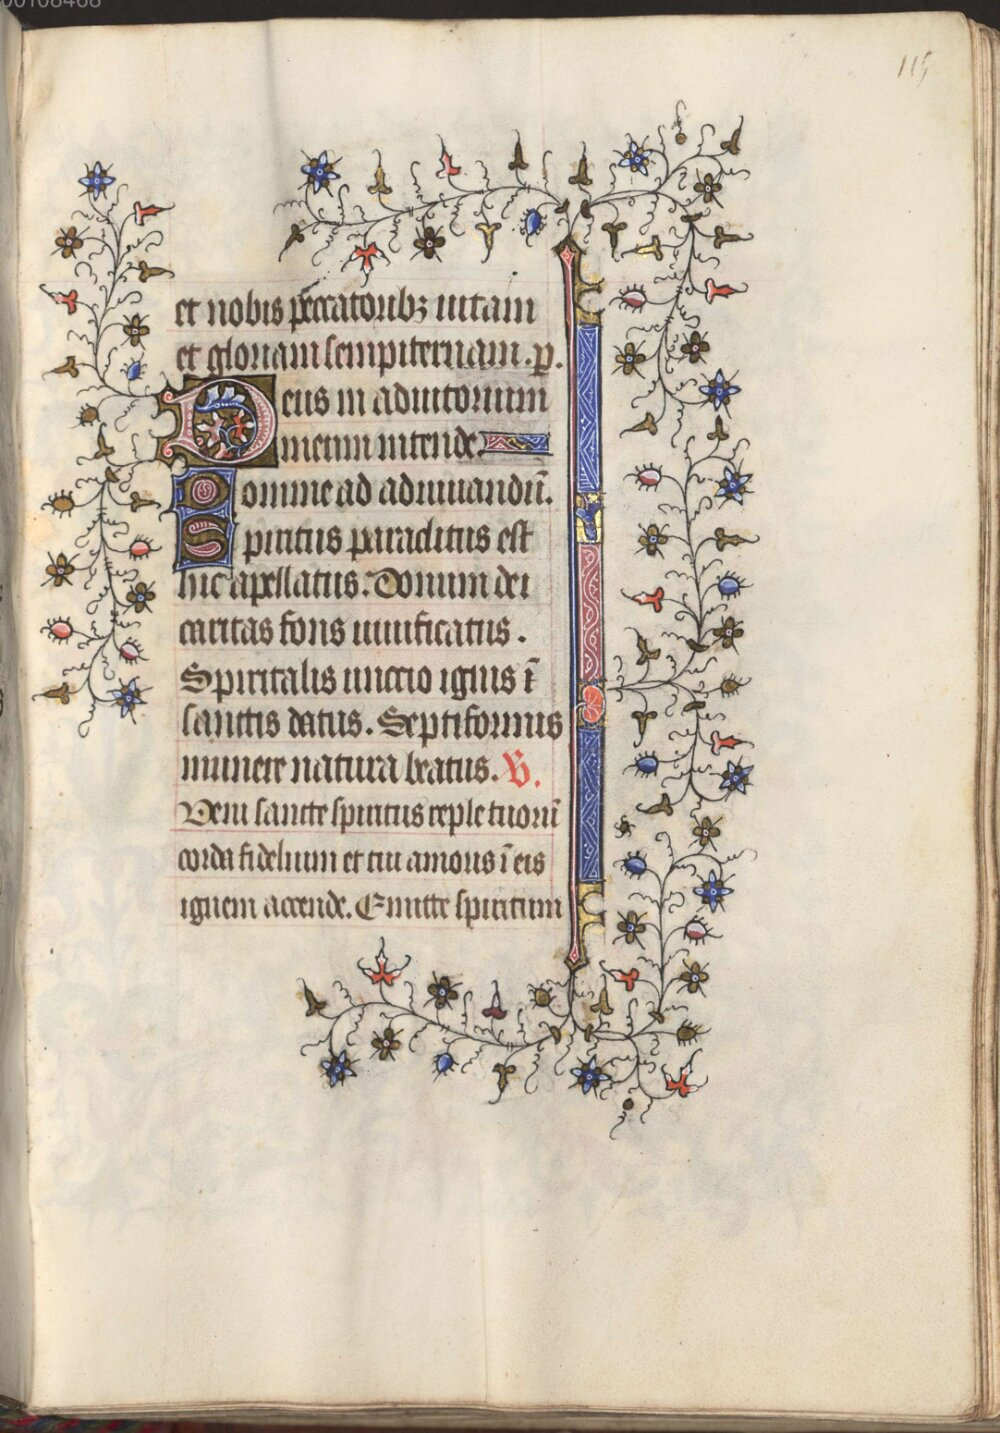 00108468
115
et nobis peccatoribꝫ uitam
et gloriam sempiternam. p.
Deus in adiutorium
meum intende.
Domine ad adiuuandū.
Spiritus paraclitus est
hic apellatus. Donum dei
caritas fons uiuificatus.
Spiritalis unctio ignis ī
sanctis datus. Septiformis
munere natura beatus. V.
Veni sancte spiritus reple tuorū
corda fidelium et tui amoris ī eis
ignem accende. Emitte spiritum